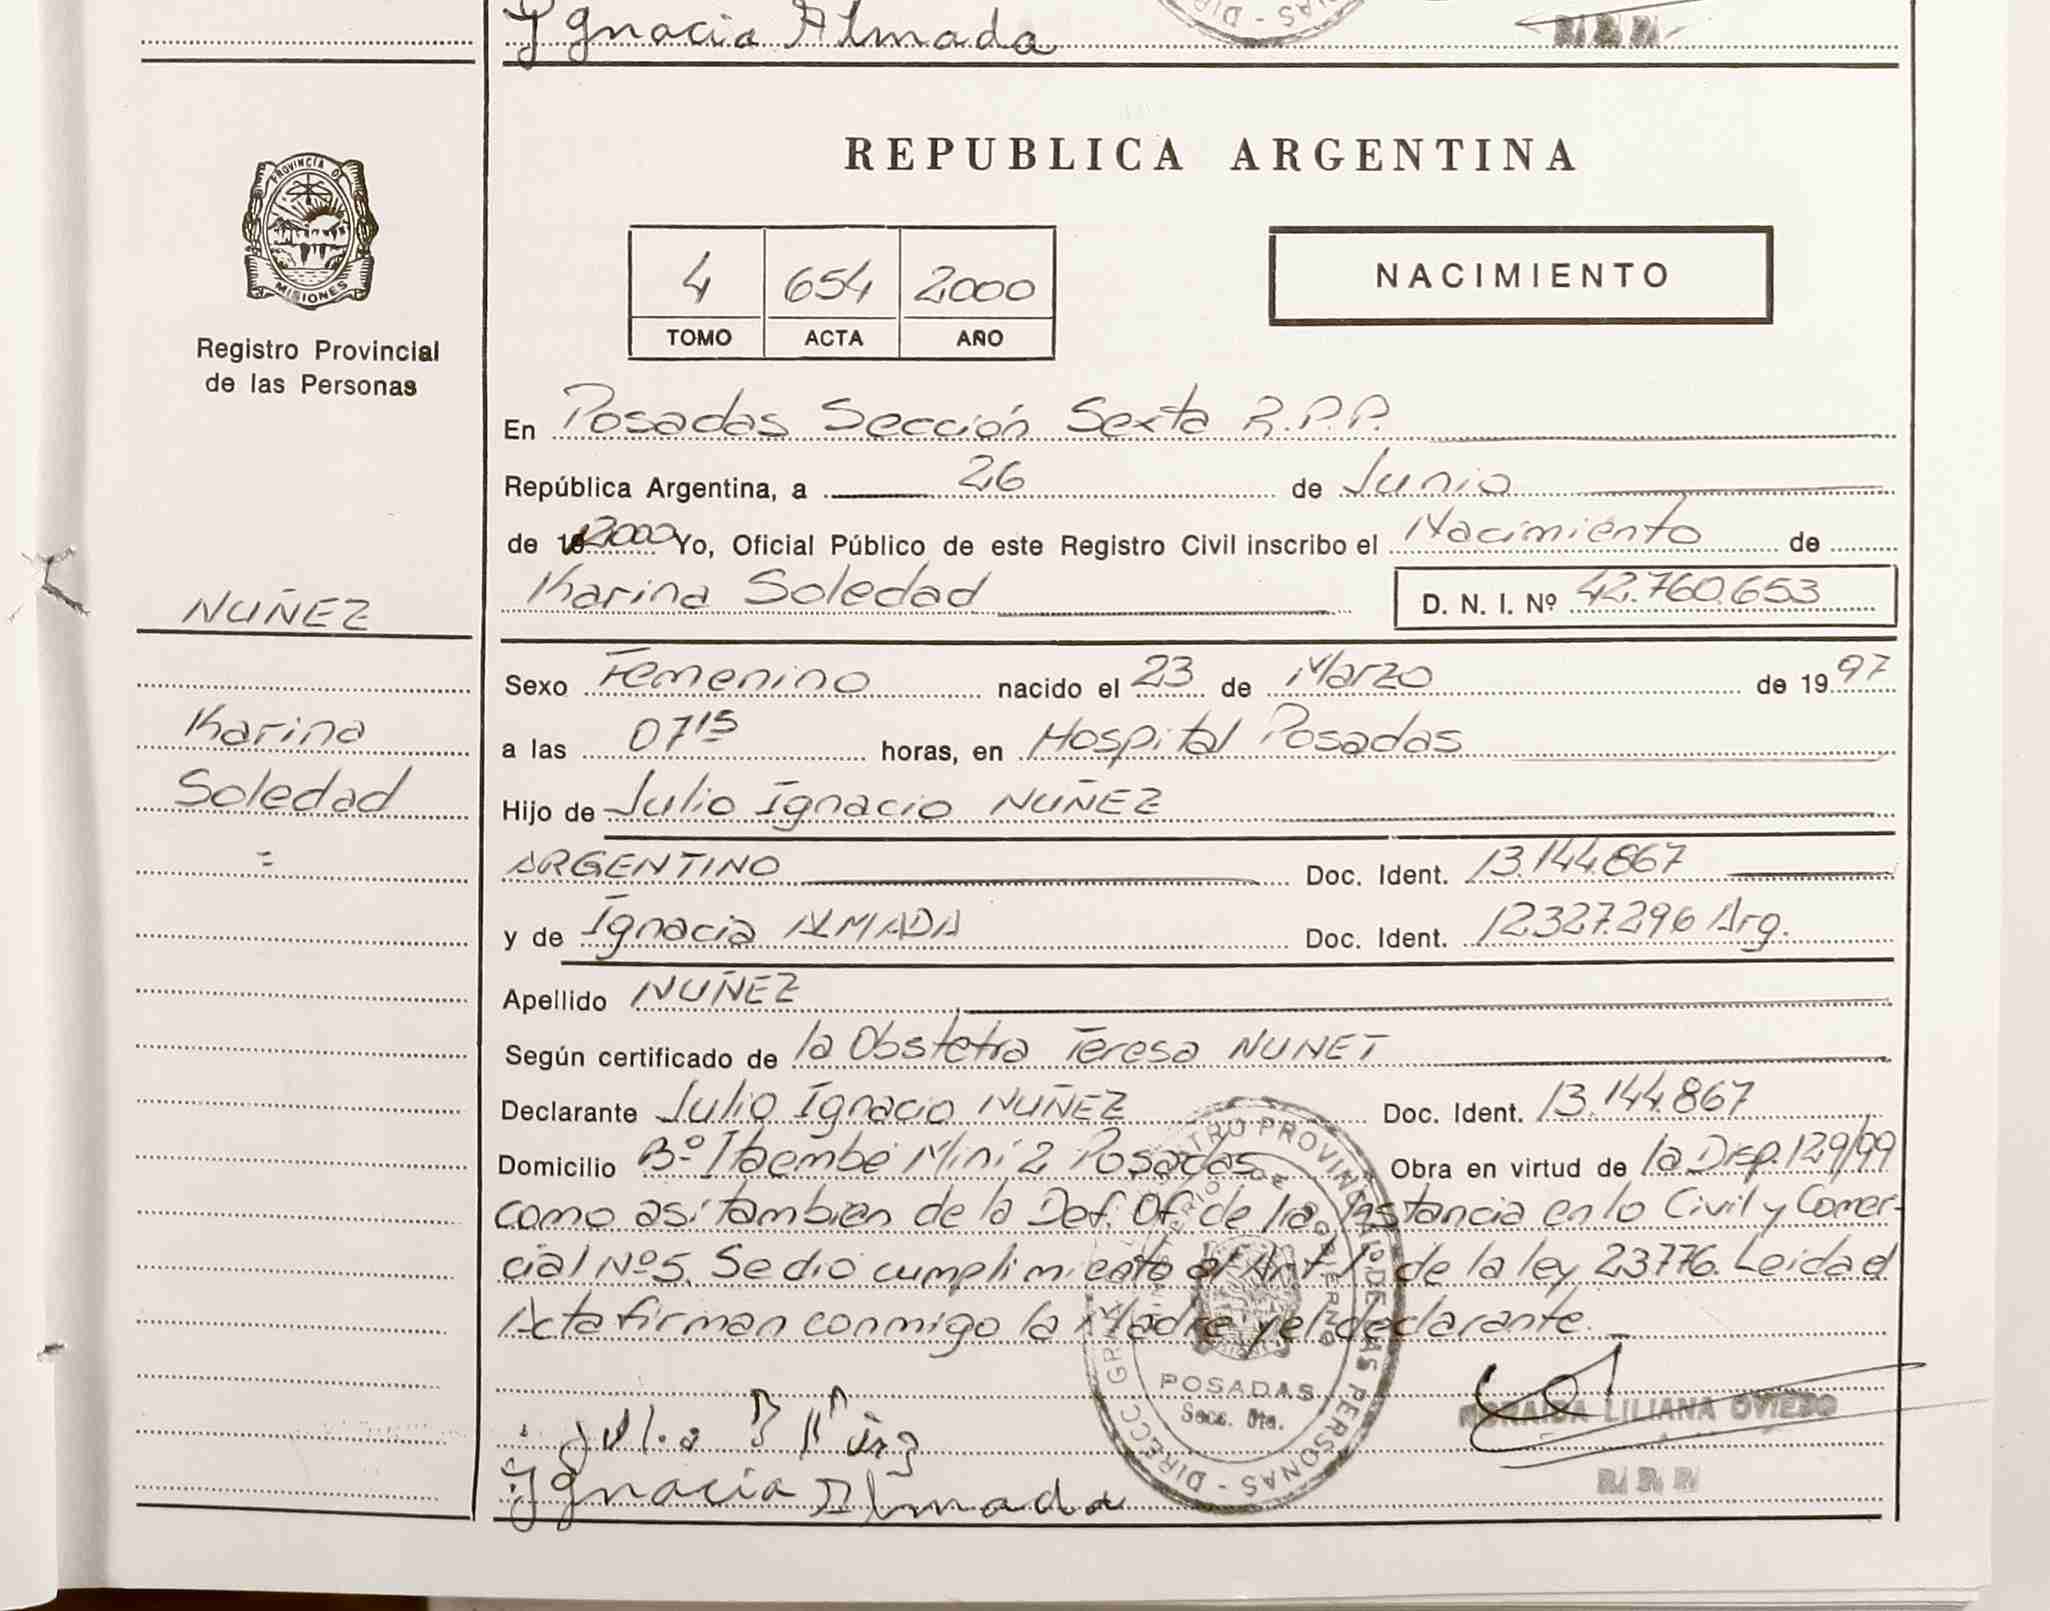 Ignacia Almada
PROVINCIA DE
MISIONES
Registro Provincial
de las Personas
REPUBLICA ARGENTINA
4 654 2000
TOMO ACTA AÑO
NACIMIENTO
En Posadas Sección Sexta R.P.P.
República Argentina, a 26 de Junio
de 2000 Yo, Oficial Público de este Registro Civil inscribo el Nacimiento de
Karina Soledad D. N. I. Nº 42.760.653
NUÑEZ
Karina
Soledad
=
Sexo Femenino nacido el 23 de Marzo de 1997
a las 07 15 horas, en Hospital Posadas
Hijo de Julio Ignacio NUÑEZ
ARGENTINO Doc. Ident. 13.144.867
y de Ignacia ALMADA Doc. Ident. 12.327.296 Arg.
Apellido NUÑEZ
Según certificado de la Obstetra Teresa NUNET
Declarante Julio Ignacio NUÑEZ Doc. Ident. 13.144.867
Domicilio Bº Itaembé Miní 2 Posadas Obra en virtud de la Disp. 129/99
como asi tambien de la Def. Of. de 1ra Instancia en lo Civil y Comer-
cial Nº5. Se dió cumplimiento al Art 1 de la ley 23776. Leida el
Acta firman conmigo la Madre y el declarante.
POSADAS
Secc. 6ta.
LILIANA OVIEDO
Ignacia Almada